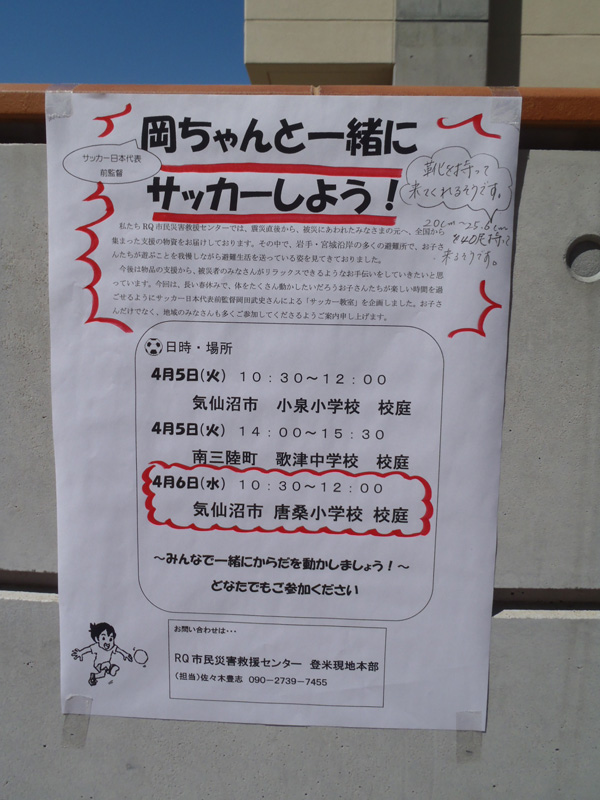 岡ちゃんと一緒に
サッカーしよう！
サッカー日本代表
前監督
靴を持って
来てくれるそうです。
20cm〜25.5cm
を40足持って
来るそうです。
私たちRQ市民災害救援センターでは、震災直後から、被災にあわれたみなさまの元へ、全国から
集まった支援の物資をお届けしております。その中で、岩手・宮城沿岸の多くの避難所で、お子さ
んたちが遊ぶことを我慢しながら避難生活を送っている姿を見てきておりました。
今後は物品の支援から、被災者のみなさんがリラックスできるようなお手伝いをしていきたいと思
っています。今回は、長い春休みで、体をたくさん動かしたいだろうお子さんたちが楽しい時間を過
ごせるようにサッカー日本代表前監督岡田武史さんによる「サッカー教室」を企画しました。お子さ
んだけでなく、地域のみなさんも多くご参加してくださるようご案内申し上げます。
日時・場所
4月5日(火) 10：30〜12：00
気仙沼市 小泉小学校 校庭
4月5日(火) 14：00〜15：30
南三陸町 歌津中学校 校庭
4月6日(水) 10：30〜12：00
気仙沼市 唐桑小学校 校庭
〜みんなで一緒にからだを動かしましょう！〜
どなたでもご参加ください
お問い合わせは・・・
RQ市民災害救援センター 登米現地本部
(担当)佐々木豊志 090-2739-7455